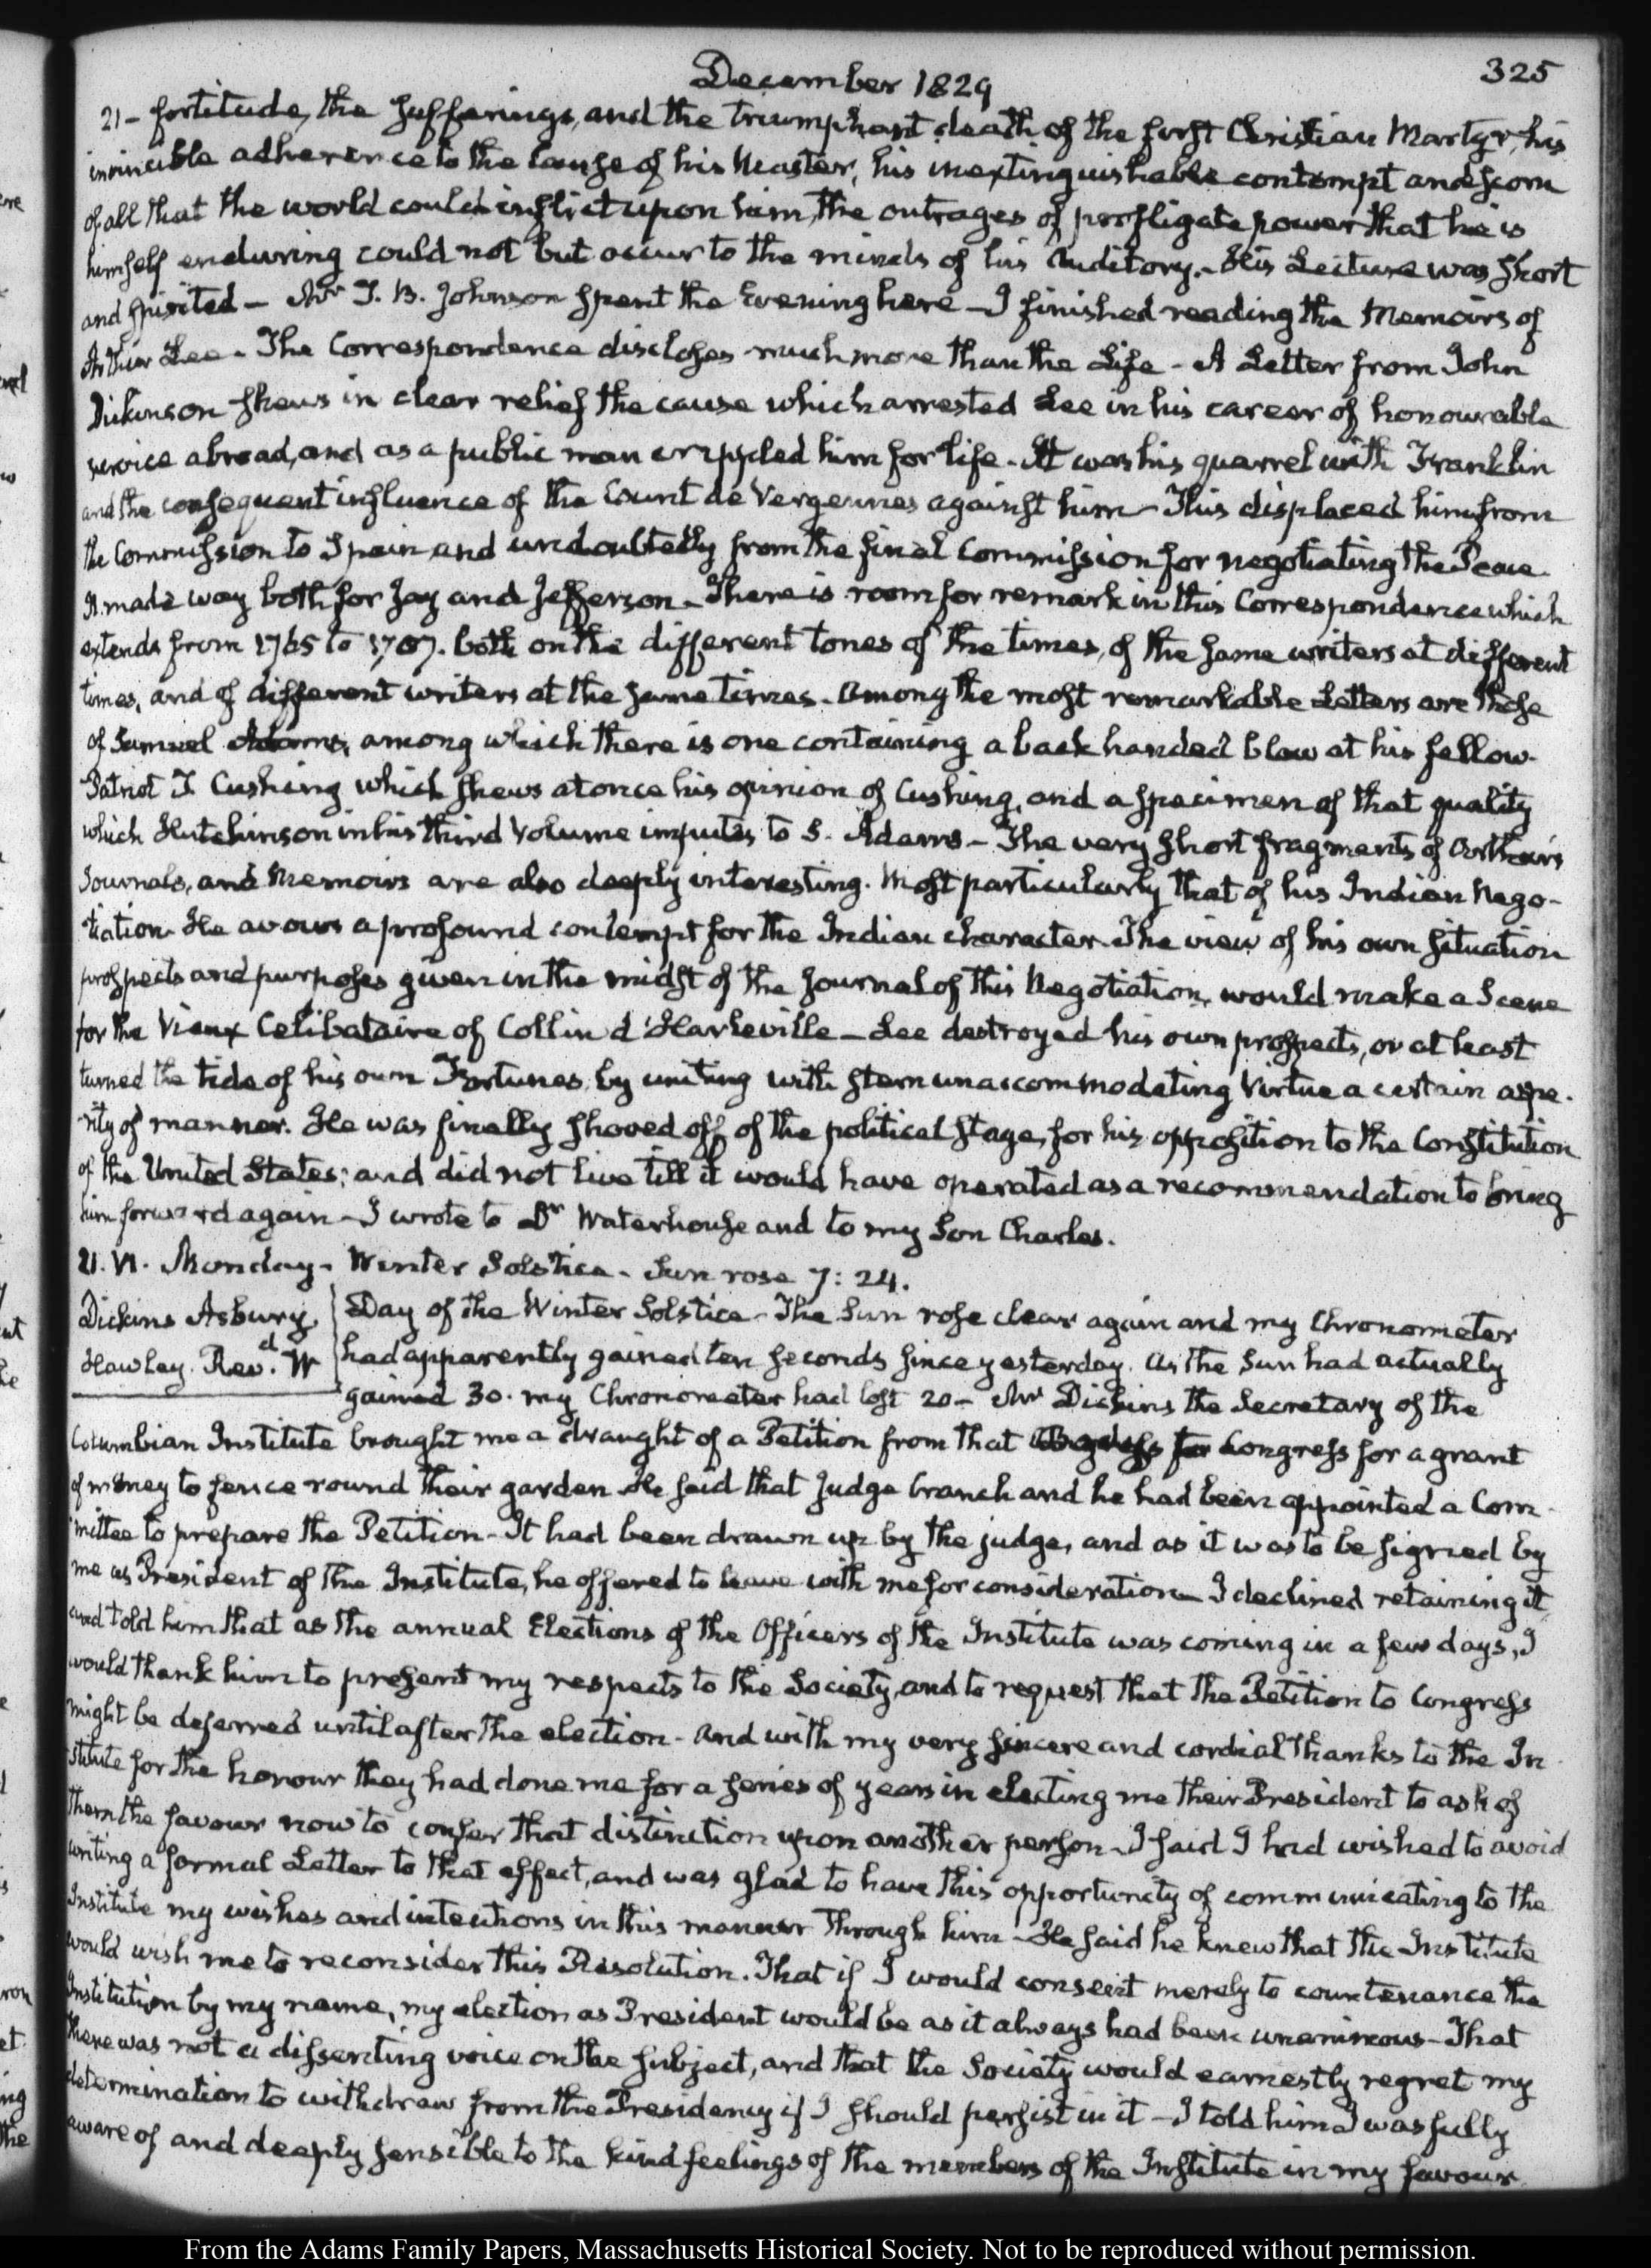 December 1829
325
21- fortitude, the sufferings, and the triumphant death of the first Christian Martyr, his
invincible adherence to the cause of his Master, his inextinguishable contempt and scorn
of all that the world could inflict upon him, the outrages of profligate power that he is
himself enduring could not but occur to the minds of his Auditory. - His Lecture was short
and spirited - Mr T. B. Johnson spent the Evening here - I finished reading the Memoirs of
Arthur Lee - The Correspondence discloses much more than the Life - A Letter from John
Dickinson shews in clear relief the cause which arrested Lee in his career of honourable
service abroad, and as a public man crippled him for life - It was his quarrel with Franklin
and the consequent influence of the Count de Vergennes against him - This displaced him from
the Commission to Spain and undoubtedly from the final Commission for negotiating the Peace
It made way both for Jay and Jefferson - There is room for remark in this Correspondence which
extends from 1765 to 1787. both on the different tones of the times, of the same writers at different
times, and of different writers at the same times. Among the most remarkable Letters are those
of Samuel Adams, among which there is one containing a back handed blow at his fellow-
Patriot T Cushing which shews at once his opinion of Cushing, and a specimen of that quality
which Hutchinson in his third Volume imputes to S. Adams - The very short fragments of Arthur's
Journals, and Memoirs are also deeply interesting. Most particularly that of his Indian Nego-
tiation. He avows a profound contempt for the Indian character. The view of his own situation
prospects and purposes given in the midst of the Journal of this Negotiation, would make a Scene
for the Vieux Celibataire of Collin d'Harleville - Lee destroyed his own prospects, or at least
turned the tide of his own Fortunes, by uniting with stern unaccommodating Virtue a certain aspe-
rity of manner. He was finally shoved off of the political stage, for his opposition to the Constitution
of the United States; and did not live till it would have operated as a recommendation to bring
him forward again - I wrote to Dr Waterhouse and to my Son Charles.
21. VI. Monday - Winter Solstice - Sun rose 7: 24.
Dickins Asbury. Day of the Winter Solstice - The Sun rose clear again and my Chronometer
Hawley. Revd. W had apparently gained ten seconds since yesterday. As the Sun had actually
gained 30. my Chronometer had lost 20 - Mr Dickins the Secretary of the
Columbian Institute brought me a draught of a Petition from that Congress for a grant
of money to fence round their garden. He said that Judge Cranch and he had been appointed a Com-
mittee to prepare the Petition - It had been drawn up by the judge, and as it was to be signed by
me as President of the Institute, he offered to leave with me for consideration - I declined retaining it
and told him that as the annual Elections of the Officers of the Institute was coming in a few days, I
would thank him to present my respects to the Society, and to request that the Petition to Congress
might be deferred until after the election - and with my very sincere and cordial thanks to the In-
stitute for the honour they had done me for a series of years in electing me their President to ask of
them the favour now to confer that distinction upon another person - I said I had wished to avoid
writing a formal Letter to that effect, and was glad to have this opportunity of communicating to the
Institute my wishes and intentions in this manner through him - He said he knew that the Institute
would wish me to reconsider this Resolution. That if I would consent merely to countenance the
Institution by my name, my election as President would be as it always had been unanimous - That
there was not a dissenting voice on the subject, and that the Society would earnestly regret my
determination to withdraw from the Presidency if I should persist in it - I told him I was fully
aware of and deeply sensible to the kind feelings of the members of the Institute in my favour
From the Adams Family Papers, Massachusetts Historical Society. Not to be reproduced without permission.